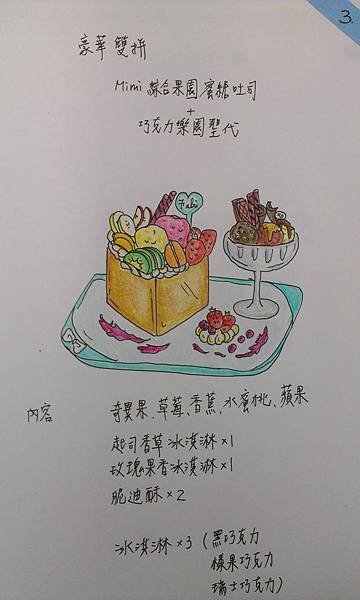 3.
豪華雙拼
Mimi 綜合果園蜜糖吐司
+
巧克力樂園聖代
內容
奇異果、草莓、香蕉、水蜜桃、蘋果
起司香草冰淇淋×1
玫瑰果香冰淇淋×1
脆迪酥×2
冰淇淋×3 (黑巧克力
榛果巧克力
瑞士巧克力)